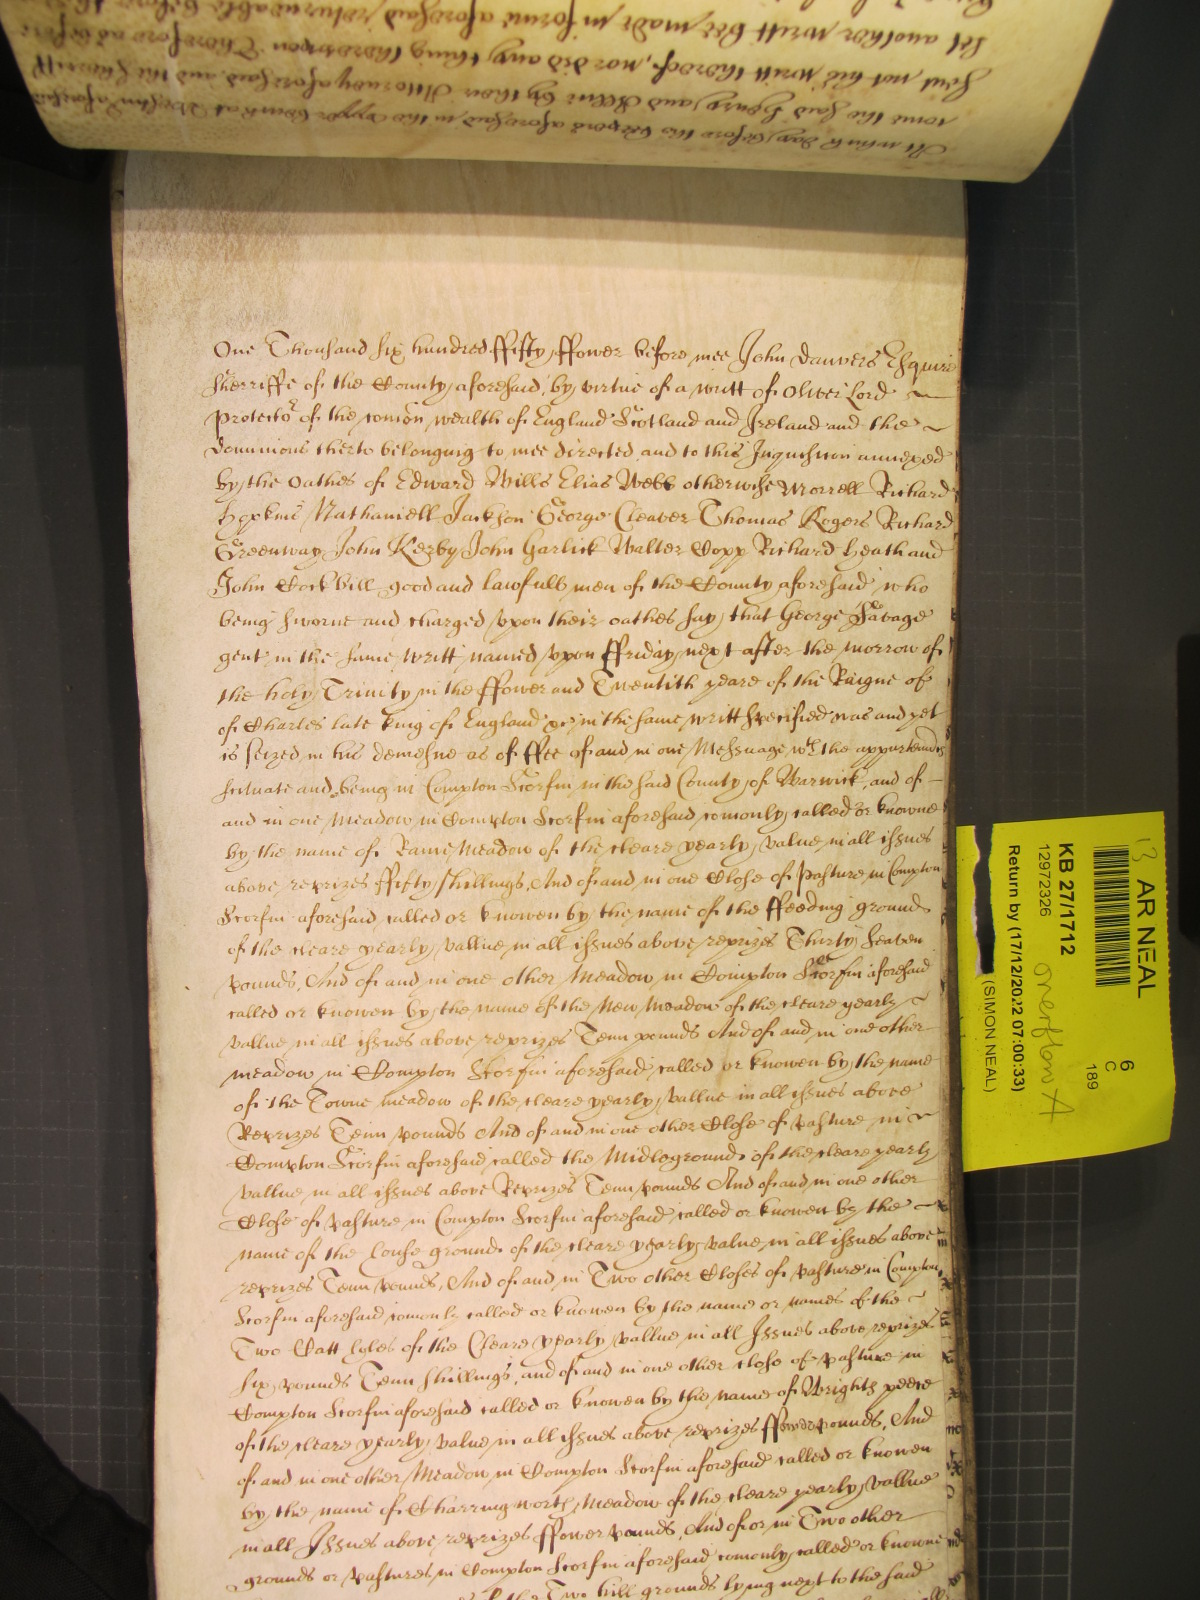 At which day before the
come the said Henry and Alline by their Attorney aforesaid, and the Sheriff
sent not his writt thereof, nor did any thing thereupon Therefore as before
let another writt bee made in forme aforesaid returneable before the
One Thousand six hundred ffifty ffower before mee John Danvers Esquire
Sherriffe of the County aforesaid by virtue of a writt of Oliver Lord
Protector of the comon wealth of England Scotland and Ireland and the
dominions therto belonging to mee directed and to this Inquisicon annexed
by the Oathes of Edward Wills Elias Webb otherwise Morrell Richard
Hopkins Nathaniell Jackson George Cleaver Thomas Rogers Richard
Greenway John Kerby John Garlick Walter Copp Richard Heath and
John Cockbill good and lawfull men of the County aforesaid who
being sworne and charged upon their oathes say that George Savage
gent in the same writt named upon ffriday next after the morrow of
the holy Trinity in the ffower and Twentith yeare of the Raigne of
of Charles late King of England &c in the same writt specified was and yet
is seized in his demesne as of ffee of and in one Messuage wth the appurtenncs
scituate and being in Compton Scorfin in the said County of Warwick and of
and in one Meadow in Compton Scorfin aforesaid comonly called or knowne
by the name of Rame Meadow of the cleare yearly value in all issues
above reprizes ffifty shillings, And of and in one Close of Pasture in Compton
Scorfin aforesaid called or knowen by the name of the ffeeding ground
of the cleare yearly vallue in all issues above reprizes Thirty Seaven
pounds, And of and in one other Meadow in Compton Scorfin aforesaid
called or knowen by the name of the New Meadow of the cleare yearly
vallue in all issues above reprizes Tenn pounds And of and in one other
meadow in Compton Scorfin aforesaid called or knowen by the name
of the Towne meadow of the cleare yearly vallue in all issues above
Reprizes Tenn pounds And of and in one other Close of pasture in
Compton Scorfin aforesaid called the Midleground of the cleare yearly
vallue in all issues above Reprizes Tenn pounds And of and in one other
Close of pasture in Compton Scorfin aforesaid called or knowen by the
name of the Conse ground of the cleare yearly value in all issues above
reprizes Tenn pounds, And of and in Two other Closes of pasture in Compton
Scorfin aforesaid comonly called or knowen by the name or names of the
Two Catt of the Cleare yearly vallue in all Issues above reprizes
six pounds Tenn shillings, and of and in one other close of pasture in
Compton Scorfin aforesaid called or knowen by the name of Wrights peece
of the cleare yearly value in all issues above reprizes ffower pounds, And
of and in one other Meadow in Compton Scorfin aforesaid called or knowen
by the name of Charringworth Meadow of the cleare yearly vallue
in all Issues above reprizes ffower pounds, And of or in Two other
grounds or pastures in Compton Scorfin aforesaid comonly called or knowne
the Two hill grounds lying next to the said
13 AR NEAL
6
C
189
KB 27/1712
12972326
Return by (17/12/2022 07:00:33)
(SIMON NEAL)